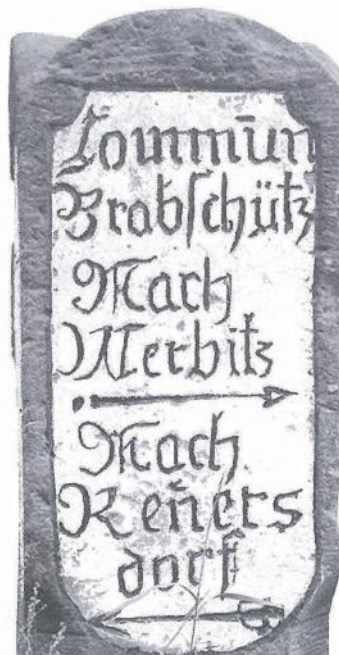 Commūn
Brabſchütz
Nach
Merbitz
Nach
Reñers
dorf